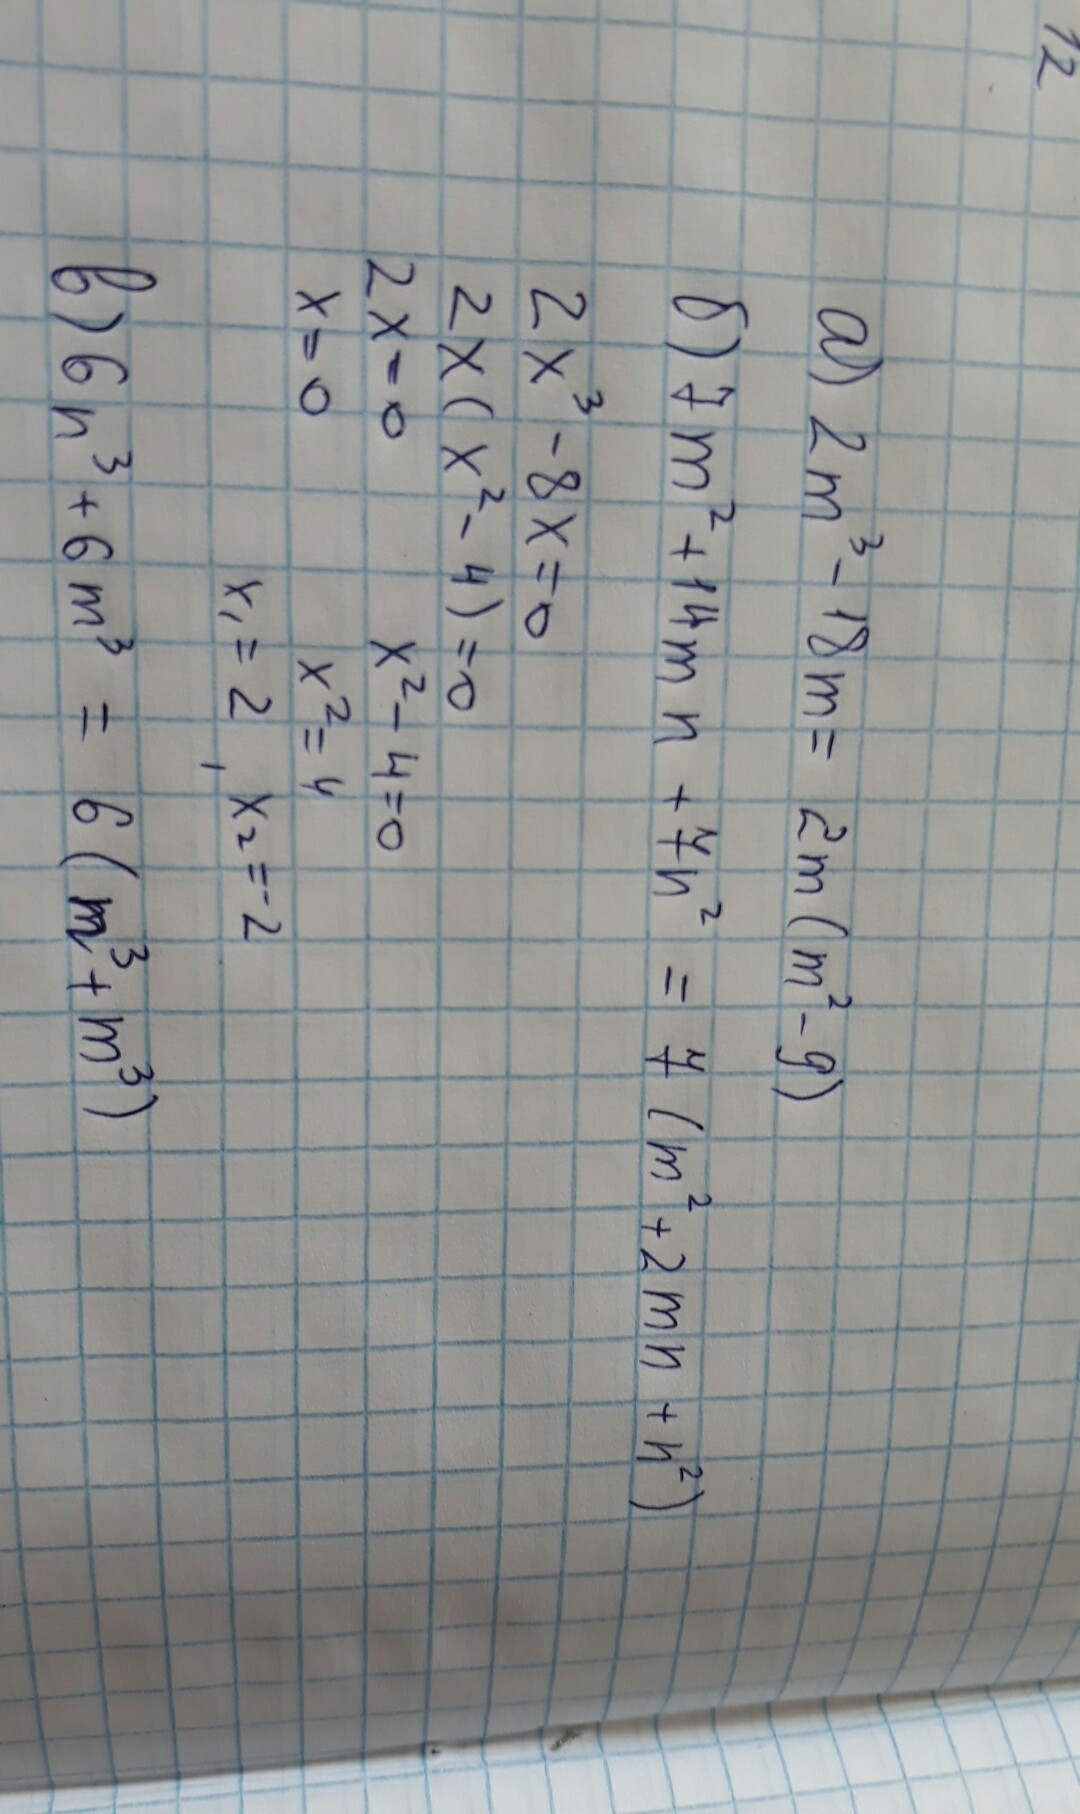 12
а) 2m³ - 18m = 2m(m² - 9)
б) 7m² + 14mn + 7n² = 7(m² + 2mn + n²)
2x³ - 8x = 0
2x(x² - 4) = 0
2x = 0 x² - 4 = 0
x = 0 x² = 4
x₁ = 2, x₂ = -2
в) 6n³ + 6m³ = 6(m³ + m³)